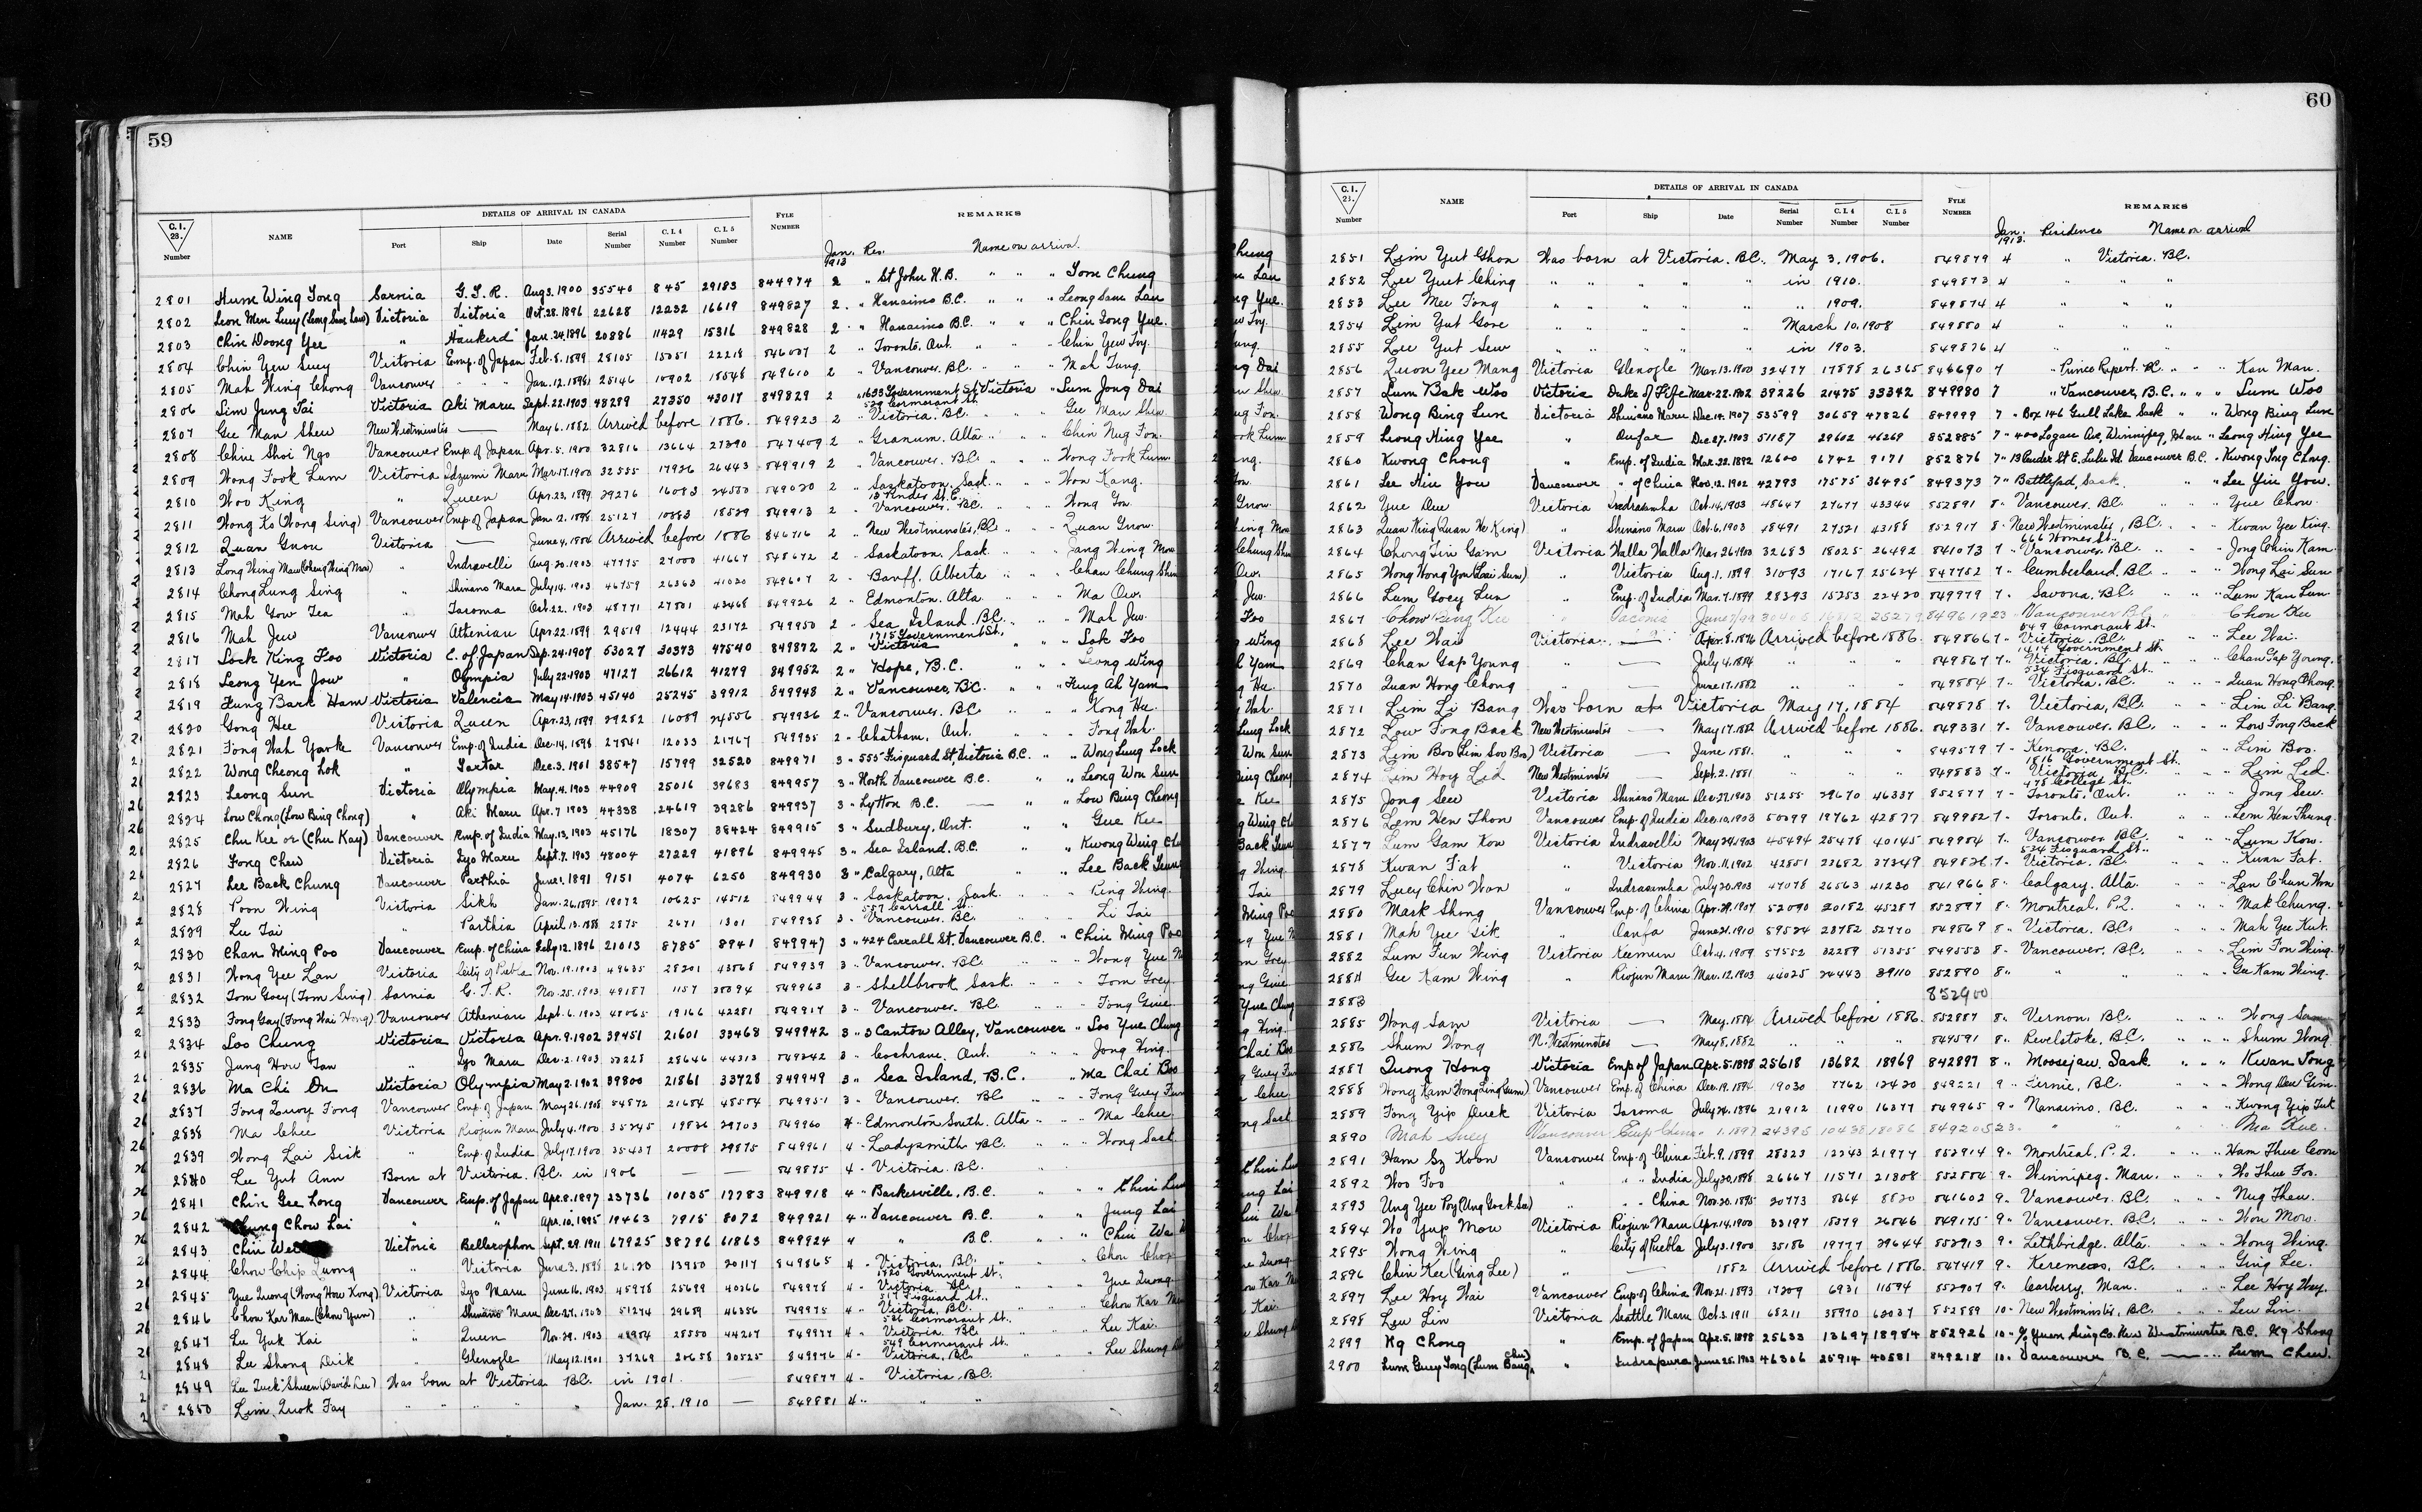 59
C.I. 28. Number NAME DETAILS OF ARRIVAL IN CANADA FYLE NUMBER REMARKS
Port Ship Date Serial Number C.I.4 Number C.I.5 Number
Jan. 1913 Res. Name on arrival.
2801 Hum Wing Tong Sarnia G.T.R. Aug 3. 1900 35540 845 29183 844974 2 " St John N.B. " " " Tom Chung
2802 Victoria Victoria Oct. 28. 1896 22628 12232 16619 849827 2 " Nanaimo B.C. " " " Leong Sam Lau
2803 Chin Doong Yee " Jan. 24. 1896 20886 11429 15316 849828 2 " Nanaimo B.C. " " " Chin Tong Yue
2804 Chin Yew Suey Victoria Emp. of Japan Feb. 8. 1899 28105 15051 22218 2 " Toronto, Ont. " " Chin Yew Foy.
2805 Mah Wing Chong Vancouver " " " Jan. 12. 1898 25146 10902 18548 849610 2 " Vancouver. B.C. " " Mah Fung.
2806 Lim Jung Tai Victoria Aki Maru Sept. 22. 1903 48289 27350 43017 849829 2 " 1633 Government St. Victoria " Lum Jong Dai
2807 Gee Man Shew New Westminster — May 6. 1882 Arrived before 1886. 849923 2 " 529 Cormorant St. Victoria, B.C. " " Gee Man Shew
2808 Chin Shoi Ngo Vancouver Emp. of Japan Apr. 5. 1900 32816 13664 27390 847409 2 " Granum. Alta " " Chin Nug Fon.
2809 Wong Fook Lum Victoria Idzumi Maru Mar. 17. 1900 32555 17926 26443 849919 2 " Vancouver. B.C. " " Wong Fook Lum
2810 Woo King " Queen Apr. 23. 1899 29276 16083 24550 849020 2 " Saskatoon. Sask. " " Won Kang.
2811 Wong Ko (Wong Sing) Vancouver Emp. of Japan Jan. 12. 1898 25127 10883 18529 849913 2 " 13 Pender St. E. Vancouver. B.C. " " Wong Gow
2812 Quan Guon Victoria — June 4. 1884 Arrived before 1886 846716 2 " New Westminster, B.C. " " Quan Grow.
2813 " Indravelli Aug. 20. 1903 47775 27000 41667 848672 2 " Saskatoon. Sask. " " Jang Wing Mow
2814 Chong Lung Sing " Shinano Maru July 14. 1903 46759 26363 41020 849607 2 " Banff. Alberta " " Chan Chung Shin
2815 Mah Yow Tea " Tacoma Oct. 22. 1903 48771 27801 43468 849926 2 " Edmonton. Alta. " " Ma Ow.
2816 Mah Jew Vancouver Athenian Apr. 22. 1899 29519 12444 23172 849950 2 " Sea Island. B.C. " " Mah Jew.
2817 Lock King Foo Victoria E. of Japan Sep. 24. 1907 53027 30373 47540 849872 2 " 1715 Government St. Victoria " " Lok Foo
2818 Leong Yen Jow " Olympia July 22. 1903 47127 26612 41279 849952 2 " Hope, B.C. " " Leong Wing
2819 Fung Bark Ham Victoria Valencia May 14. 1903 45140 25245 39912 849948 2 " Vancouver, B.C. " " Fung Ah Yam
2820 Gong Hee Victoria Queen Apr. 23. 1899 29282 16089 24556 849936 2 " Vancouver. B.C. " " Kong He
2821 Fong Wah York Vancouver Emp. of India Dec. 14. 1898 27841 12033 21767 849935 2 " Chatham, Ont. " " Fong Wah.
2822 Wong Cheong Lok " Tartar Dec. 3. 1901 38547 15799 32520 849971 3 " 555 Fisguard St. Victoria B.C. " " Wong Lung Lock
2823 Leong Sun Victoria Olympia May. 4. 1903 44909 25016 39683 849957 3 " North Vancouver B.C. " " Leong Won Sun
2824 Low Chong (Low Bing Chong) " Aki Maru Apr. 7 1903 44338 24619 39286 849937 3 " Lytton B.C. — " " Low Bing Cheong
2825 Chu Kee or (Chu Kay) Vancouver Emp. of India May. 13. 1903 45176 18307 38424 849915 3 " Sudbury, Ont. " " Gue Kee
2826 Fong Chew Victoria Iyo Maru Sept. 7. 1903 48004 27229 41896 849945 3 " Sea Island. B.C. " " Kwong Wing
2827 Lee Back Chung Vancouver Parthia June 1. 1891 9151 4074 6250 849930 3 " Calgary, Alta " " Lee Back
2828 Poon Wing Victoria Sikh Jan. 26. 1895 19072 10625 14512 849944 3 " Saskatoon. Sask. " " Ping Wing.
2829 Lee Tai " Parthia April. 13. 1888 2875 2671 1301 849938 3 " 557 Carrall St. Vancouver. B.C. " " Li Tai
2830 Chan Ming Poo Vancouver Emp. of China July 12. 1896 21013 8785 8941 849947 3 " 424 Carrall St. Vancouver B.C. " Chin Ming Poo
2831 Wong Yee Lan Victoria City of Puebla Nov. 19. 1903 49635 28201 43868 849939 3 " Vancouver. B.C. " " Wong Yue
2832 Tom Goey (Tom Sing) Sarnia G.T.R. Nov. 25. 1903 49187 1157 849963 3 " Shellbrook Sask. " " Tom Goey
2833 Fong Gay (Fong Wai Hong) Vancouver Athenian Sept. 6. 1903 48065 19166 42281 849917 3 " Vancouver. B.C. " " Fong Guie
2834 Soo Chung Victoria Victoria Apr. 9. 1902 39451 21601 33468 849942 3 " 3 Canton Alley, Vancouver " Soo Yue Chung
2835 Jung How Tan " Iyo Maru Dec. 2. 1903 28646 44313 849242 3 " Cochrane. Ont. " " Jong Wing.
2836 Ma Chi On Victoria Olympia May 2. 1902 39800 21861 33728 849949 3 " Sea Island, B.C. " Ma Chai Bo
2837 Fong Quoy Fong Vancouver Emp. of Japan May 26. 1908 54872 21654 48554 849951 3 " Vancouver. B.C. " " Fong Guey
2838 Ma Chee Victoria Riojun Maru July 4. 1900 35245 19826 29703 849960 4 " Edmonton South. Alta " " Ma Chee
2839 Wong Lai Sick " Emp. of India July 17. 1900 35437 20008 29875 849961 4 " Ladysmith B.C. " " Wong Sack
2840 Lee Yut Ann Born at Victoria. B.C. in 1906 — — 849875 4 " Victoria. B.C.
2841 Chin Gee Long Vancouver Emp. of Japan Apr. 8. 1897 23736 10135 17283 849918 4 " Barkerville, B.C. " "
2842 Chung Chow Lai " " Apr. 10. 1895 19463 7915 8072 849921 4 " Vancouver B.C. " " Jung Lai
2843 Chin Victoria Bellerophon Sept. 29. 1911 67925 38796 61863 849924 " " B.C. " " Chin Wa
2844 Chow Chip Quong " Victoria June 3. 1898 26120 13950 20117 849865 4 " Victoria, B.C. " Chou Chop
2845 Yue Quong (Wong How Kong) Victoria Iyo Maru June 16. 1903 45978 25699 40366 849978 4 " 1820 Government St. Victoria B.C. " " Yue Quong
2846 Chow Kar Man (Chow Yum) " Shinano Maru Dec. 27. 1903 51274 29689 46356 849975 4 " 517 Fisguard St. Victoria, B.C. " " Chow Kar
2847 Lee Yuk Kai " Queen Nov. 29. 1903 28550 44217 849977 4 " 526 Cormorant St. Victoria, B.C. " " Lee Kai
2848 Lee Shong Dick " Glenogle May 12. 1901 37269 20658 30525 849976 4 " 549 Cormorant St. Victoria, B.C. " " Lee Shung
2849 Lee Tuck Sheen (David Lee) Was born at Victoria B.C. in 1901. — 849877 4 " Victoria, B.C.
2850 Lim Quok Fay " " " " " Jan. 28. 1910 — 849881 4 " " "
60
C.I. 23. Number NAME DETAILS OF ARRIVAL IN CANADA FYLE NUMBER REMARKS
Port Ship Date Serial Number C.I.4 Number C.I.5 Number
Jan. 1913. Residence Name on arrival
2851 Lim Yut Ghon Was born at Victoria. B.C. May 3, 1906. 849879 4 " Victoria. B.C.
2852 Lee Yuet Ching " " " " " in 1910. 849873 4 " " "
2853 Lee Mee Fong " " " " " " 1909. 849874 4 " " "
2854 Lim Yut Gore " " " " " March 10. 1908 849880 4 " " "
2855 Lee Yut Sew " " " " " in 1903. 849876 4 " " "
2856 Quon Yee Mang Victoria Glenogle Mar. 13. 1900 32477 17878 26365 846690 7 " Prince Rupert. B.C. " " Kan Man.
2857 Lum Bak Woo Victoria Duke of Fife Mar. 22. 1902 39226 21475 33342 849980 7 " Vancouver, B.C. " " " Lum Woo
2858 Wong Bing Lun Victoria Shinano Maru Dec. 14. 1907 53599 30659 47826 849999 7 " Box 146 Gull Lake Sask " " Wong Bing Lun
2859 Leong Hing Yee " Oanfa Dec. 27. 1903 51187 29602 46269 852885 7 " 400 Logan Ave, Winnipeg, Man " Leong Hing Yee
2860 Kwong Chong " Emp. of India Mar. 22. 1892 12600 6742 9171 852876 7 " 13 Pender St E, Lulu Isl. Vancouver B.C. " Kwong Ing Chong.
2861 Lee Hin You Vancouver " of China Nov. 12. 1902 42793 17575 36495 849373 7 " Battleford, Sask. " " Lee Yin You.
2862 Yue One Victoria Indrasamha Oct. 14. 1903 48647 27677 43344 852891 8 " Vancouver. B.C. " " Yue Chow
2863 Quan King (Quan Ye King) " Shinano Maru Oct. 6. 1903 48491 27521 43188 852917 8 " New Westminster, B.C. " " Kwan Yee King.
2864 Chong Sin Gam Victoria Walla Walla Mar. 26. 1900 32683 18025 26492 841073 7 " 666 Homer St. Vancouver, B.C. " " Jong Chin Kam
2865 Wong Wong You (Lai Sun) " Victoria Aug. 1. 1899 31093 17167 25634 847752 7 " Cumberland, B.C. " " Wong Lai Sun
2866 Lum Goey Lun " Emp. of India Mar. 7. 1899 28393 15253 22420 849979 7 " Savona, B.C. " " Lum Kan Lun
2867 Chow " Tacoma 849619 23 " Vancouver B.C. Chow
2868 Lee Wai Victoria. — Apr. 8. 1876 Arrived before 1886. 849866 7 " 549 Cormorant St. Victoria. B.C. " " Lee Wai.
2869 Chan Gap Young " — July 4. 1884 " " " 849867 7 " 1414 Government St. Victoria. B.C. " " Chan Gap Young.
2870 Quan Hong Chong " — June 17. 1882 " " " 849884 7 " 534 Fisguard St. Victoria. B.C. " " Quan Hong Chong.
2871 Lim Li Bang Was born at Victoria May 17, 1884 849878 7 " Victoria, B.C. " " Lim Li Bang.
2872 Low Fong Back New Westminster — May 17. 1882 Arrived before 1886. 849331 7 " Vancouver. B.C. " " Low Fong Back
2873 Lim Boo (Lim Soo Boo) Victoria — June 1881. " " 849579 7 " Kenora. B.C. " " Lim Boo.
2874 Lim Hoy Lid New Westminster — Sept. 2. 1881 " " " 849883 7 " 1816 Government St. Victoria B.C. " " Lim Led
2875 Jong Sew Victoria Shinano Maru Dec. 27. 1903 51255 29670 46337 852877 7 " 478 College St. Toronto, Ont. " " Jong Sew.
2876 Lem Hen Thon Vancouver Emp. of India Dec. 10. 1903 50099 19762 42877 849982 7 " Toronto, Ont. " " Lem Hen Thung.
2877 Lum Gam Kow Victoria Indravelli May 29. 1903 45494 25478 40145 849984 7 " Vancouver B.C. " " Lum Kow.
2878 Kwan Fat " Victoria Nov. 11. 1902 42851 23682 37349 849826 7 " 534 Fisguard St. Victoria. B.C. " " Kwan Fat.
2879 Luey Chin Wan " Indrasamha July 20. 1903 47078 26563 41230 841966 8 " Calgary. Alta. " " Lan Chun Won
2880 Mark Shong Vancouver Emp. of China Apr. 29. 1907 52090 20182 45287 852897 8 " Montreal, P.Q. " " Mak Chung.
2881 Mah Yee Sik " Oanfa June 21. 1910 59524 23752 52770 849869 8 " Victoria. B.C. " " Mah Yee Kut.
2882 Lum Fun Wing Victoria Keemun Oct. 4. 1909 57552 32289 51355 849553 8 " Vancouver. B.C. " " Lim Fon Wing.
2884 Gee Kam Wing " Riojun Maru Mar. 12. 1903 44025 24443 39110 852890 8 " " " " Gee Kam Wing.
2883 852900
2885 Wong Sam Victoria — May. 1884 Arrived before 1886. 852887 8 " Vernon, B.C. " " Wong Sam
2886 Shum Wong N. Westminster — May 8. 1882 " " " 849591 8 " Revelstoke, B.C. " " Shum Wong
2887 Quong Hong Victoria Emp of Japan Apr. 5. 1898 25618 13682 18969 842897 8 " Moosejaw, Sask. " " Kwan Tong
2888 Vancouver Emp. of China Dec. 19. 1894 19030 7762 12420 849221 9 " Fernie, B.C. " " Wong Dew Gim
2889 Fong Yip Duck Victoria Tacoma July 24. 1896 21912 11990 16377 849965 9 " Nanaimo, B.C. " " Kwong Yip Tuk
2890 Mah Suey Vancouver Emp China 1. 1897 24395 10438 18086 849205 23 " " Ma Kue.
2891 Ham Sz Koon Vancouver Emp. of China Feb. 9. 1899 28323 12243 21977 852914 9 " Montreal, P.Q. " " Ham Thue Coon
2892 Woo Foo " " " India July 20. 1898 26667 11571 21308 852884 9 " Winnipeg. Man. " " Wo Thue Foo.
2893 Ung Yee Poy (Ung Gock See) " " " China Nov. 20. 1895 20773 8664 8820 841602 9 " Vancouver. B.C. " " Nug Thew.
2894 Wo Yup Mow Victoria Riojun Maru Apr. 14. 1900 33197 18379 26846 849175 9 " Vancouver. B.C. " " Won Mow.
2895 Wong Wing " City of Puebla July 3. 1900 35186 19777 29644 852913 9 " Lethbridge. Alta. " " Wong Wing.
2896 Chin Kee (Ging Lee) " — 1882 Arrived before 1886. 847419 9 " Keremeos, B.C. " " Ging Lee.
2897 Lee Hoy Wai Vancouver Emp. of China Nov. 21. 1893 17209 6931 11594 852907 9 " Carberry, Man. " " Lee Hoy Way.
2898 Lew Lin Victoria Seattle Maru Oct. 3. 1911 68211 38970 62037 852889 10 " New Westminster, B.C. " " Lew Lin.
2899 Ng Chong " Emp. of Japan Apr. 5. 1898 25633 13697 18984 852926 10 " c/o Yuen Sing Co. New Westminster B.C. Ng Shong
2900 Lum Guey Tong (Lum Bang Chu) " Indrapura June 25. 1903 46306 25914 40581 849218 10 " Vancouver B.C. — " Lum Chew.